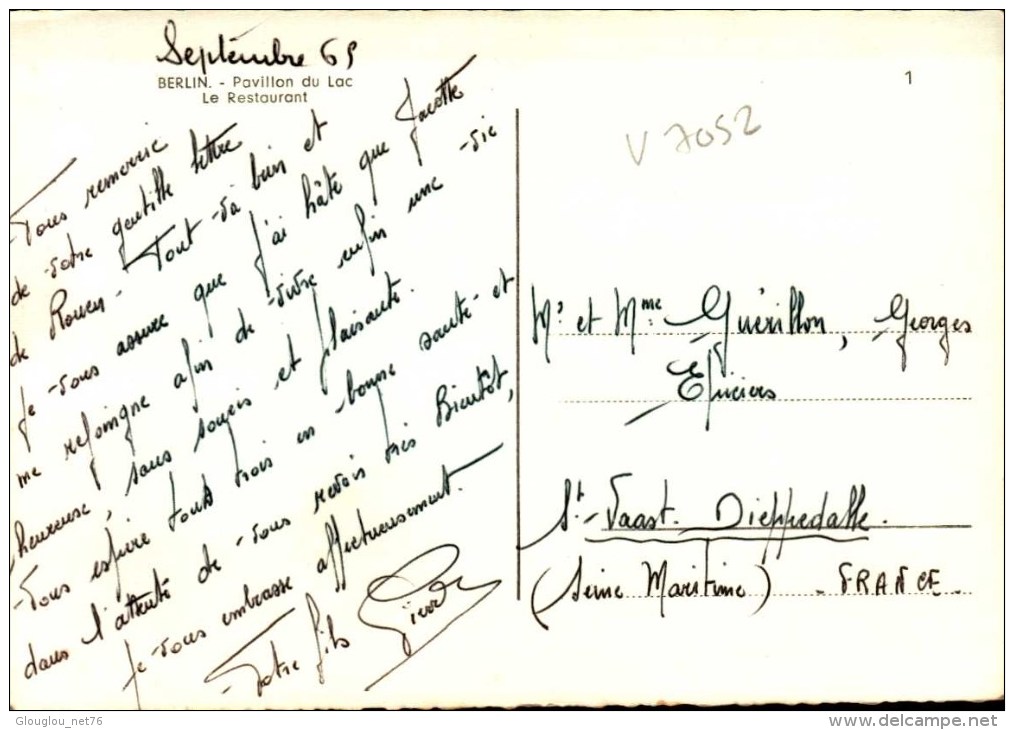 Septembre 65
BERLIN. - Pavillon du Lac
Le Restaurant
1
V 7052
Vous remercie
de votre gentille lettre
de Rouen. Tout va bien et
je vous assure que j'ai hâte que Jacotte
me rejoingne afin de vivre enfin une vie
heureuse, sans soucis et plaisante.
Vous espère touts trois en bonne santé et
dans l'attente de vous revoir très Bientôt,
je vous embrasse affectueusement.
Votre fils
Pierre
Mr et Mme Guérillon, Georges
Epiciers
St-Vaast. Dieppedalle.
(Seine Maritime) - FRANCE.
Glouglou_net76
delcampe.net